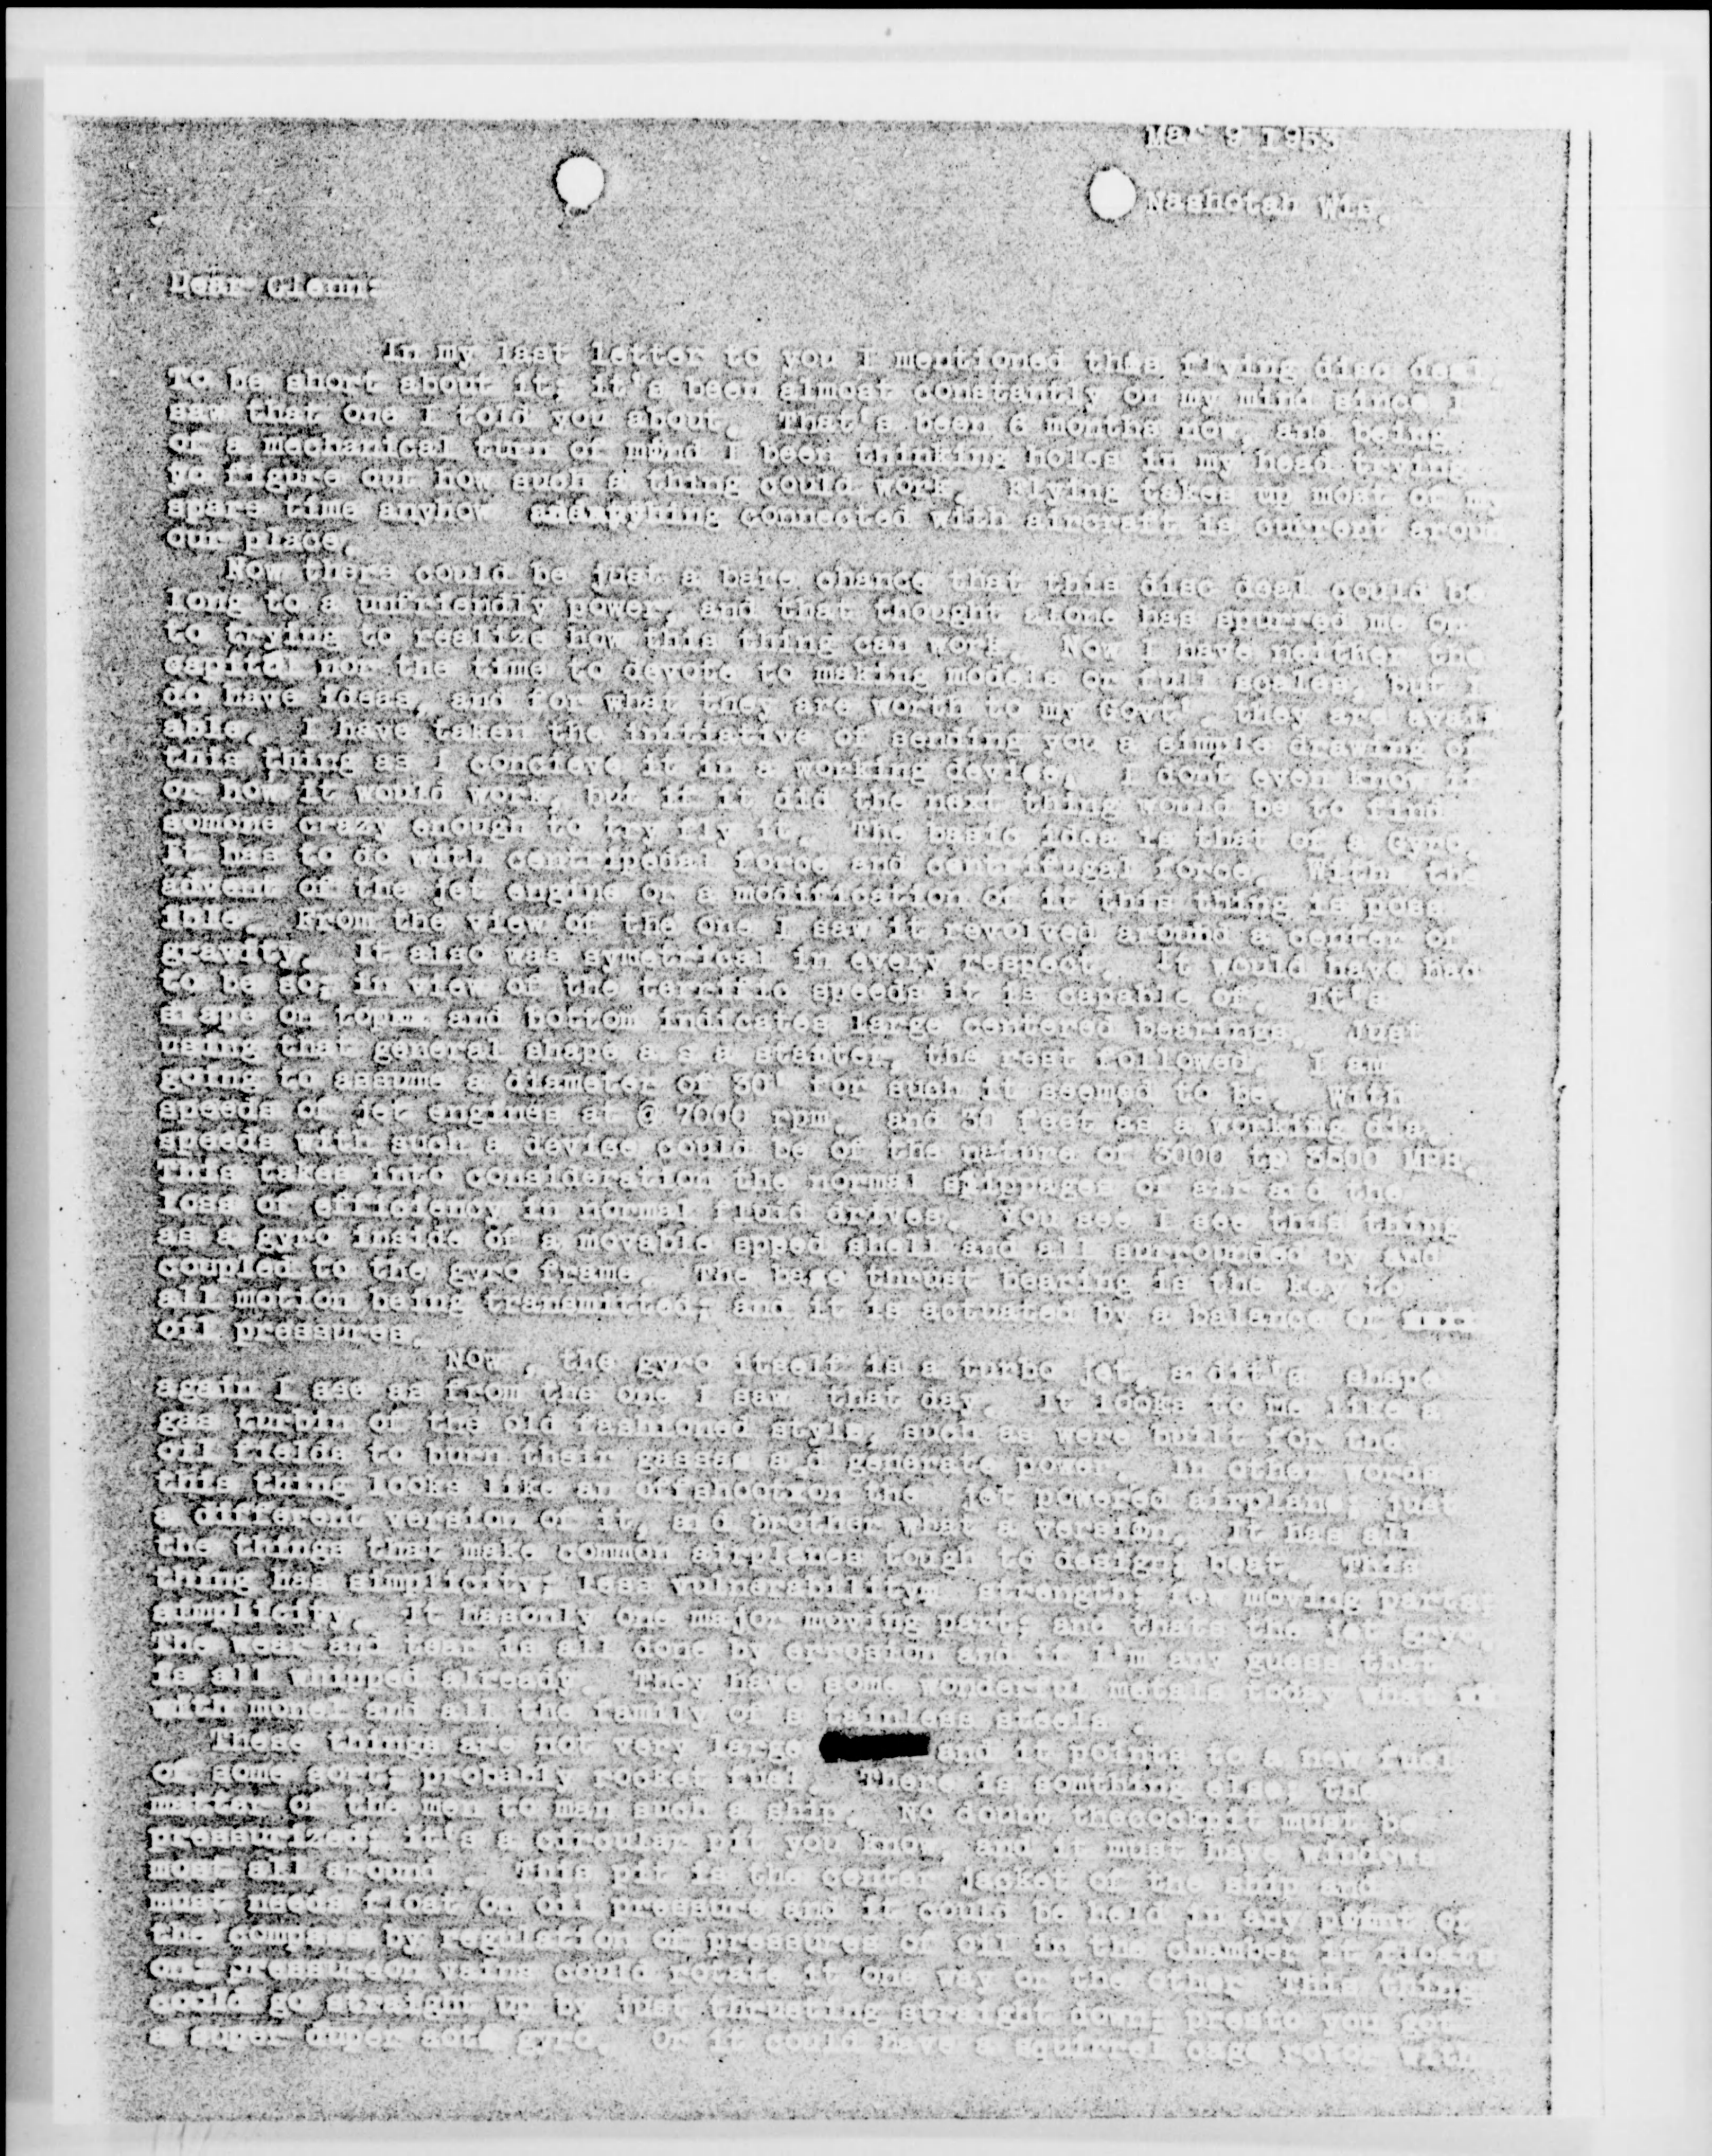 Mar 9 1953
Nashotah Wis.
Dear Glenn:
In my last letter to you I mentioned this flying disc deal.
To be short about it; it's been almost constantly on my mind since I
saw that one I told you about. That's been 6 months now, and being
of a mechanical turn of mind I been thinking holes in my head trying
yo figure out how such a thing could work. Flying takes up most of my
spare time anyhow connected with aircraft is current aroun
our place.
Now there could be just a bare chance that this disc deal could be
long to a unfriendly power, and that thought alone has spurred me on
to trying to realize how this thing can work. Now I have neither the
capital nor the time to devote to making models or full scales, but I
do have ideas, and for what they are worth to my Govt', they are avail
able. I have taken the initiative of sending you a simple drawing of
this thing as I concieve it in a working devise. I dont even know if
or how it would work, but if it did the next thing would be to find
somone crazy enough to try fly it. The basic idea is that of a Gyro.
It has to do with centripedal force and centrifugal force. With the
advent of the jet engine or a modification of it this thing is poss
ible. From the view of the one I saw it revolved around a center of
gravity. It also was symetrical in every respect. It would have had
to be so, in view of the terrific speeds it is capable of. It's
shape on top and bottom indicates large centered bearings. Just
using that general shape a s a starter, the rest followed. I am
going to assume a diameter of 30' for such it seemed to be. With
speeds of jet engines at @ 7000 rpm. and 30 feet as a working dia.
speeds with such a devise could be of the nature of 3000 to 3500 MPH.
This takes into consideration the normal slippages of air and the
loss of efficiency in normal fluid drives. You see I see this thing
as a gyro inside of a movable speed shell and all surrounded by and
coupled to the gyro frame. The base thrust bearing is the key to
all motion being transmitted, and it is actuated by a balance of
oil pressures.
Now , the gyro itself is a turbo jet, andit's shape
again I see as from the one I saw that day. It looks to me like a
gas turbin of the old fashioned style, such as were built for the
oil fields to burn their gasses and generate power. In other words
this thing looks like an offshootron the jet powered airplane; just
a different version of it, and brother what a version. It has all
the things that make common airplanes tough to design; beat. This
thing has simplicity; less vulnerability, strength; few moving parts
simplicity. It hasonly one major moving part; and thats the jet gryo.
The wear and tear is all done by errosion and if I'm any guess that
is all whipped already. They have some wonderful metals today what
with monel and all the family of s tainless steels .
These things are not very large and it points to a new fuel
of some sort; probably rocket fuel. There is somthing else, the
matter of the men to man such a ship. No doubt thecockpit must be
pressurized; it's a circular pit you know, and it must have windows
most all around . This pit is the center jacket of the ship and
must needs float on oil pressure and it could be held in any point of
the compass by regulation of pressures of oil in the chamber it floats
on; pressureon vains could rotate it one way or the other This thing
could go straight up by just thrusting straight down; presto you got
a super duper auto gyro. Or it could have a squirrel cage rotor with